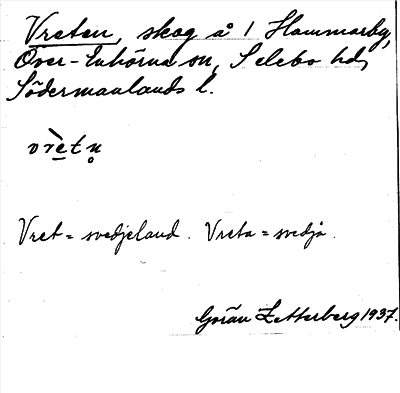 Vreten, skog å 1 Hammarby,
Över-Enhörna sn, Selebo hd,
Södermanlands l.
vrètn̥
Vret = svedjeland. Vreta = svedja.
Göran Zetterberg 1937.